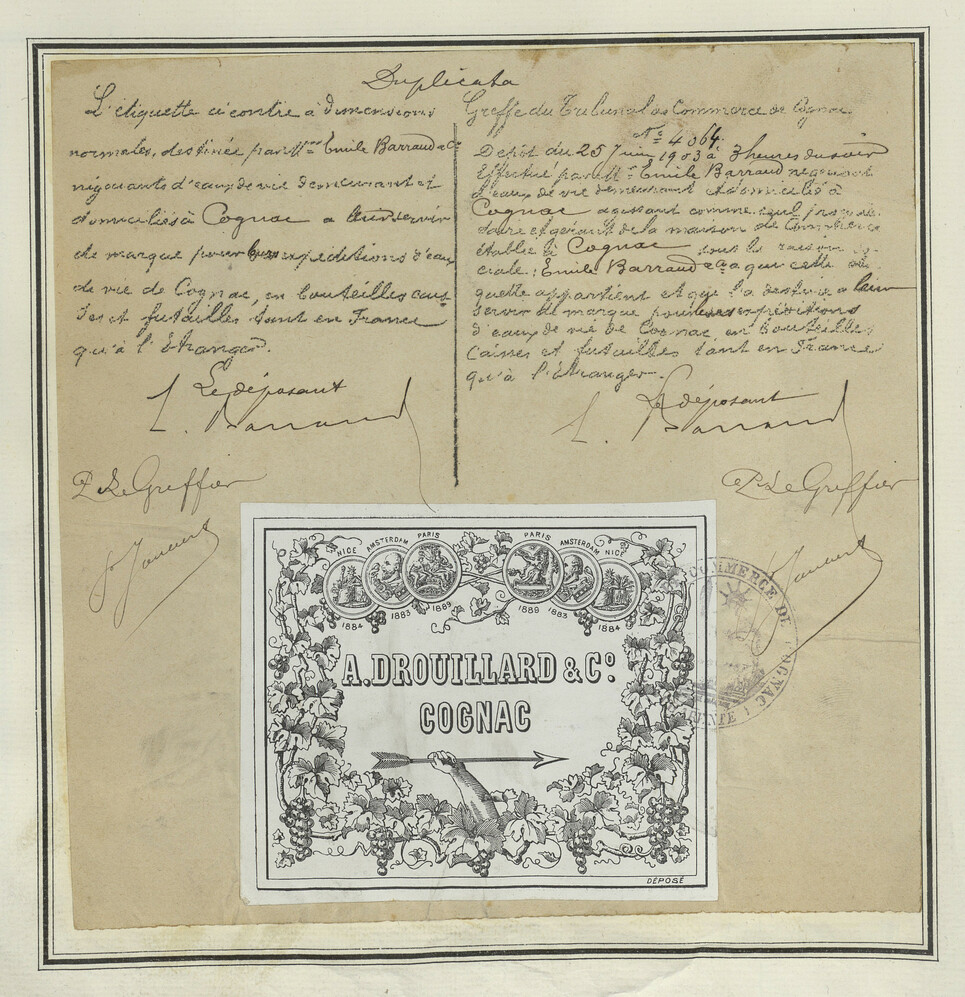 Duplicata
L'étiquette ci contre à dimensions
normales, destinée par Mrs Emile Barraud & Cie
négociants d'eaux de vie demeurant et
domiciliés à Cognac a leur servir
de marque pour leurs expéditions d'eaux
de vie de Cognac, en bouteilles cais-
ses et futailles tant en France
qu'à l'étranger.
Le déposant
E. Barraud
P. Le Greffier
Greffe du Tribunal de Commerce de Cognac
No 4064.
Dépôt du 25 Juin 1903 à 3 heures du soir
Effectué par Mr Emile Barraud négociant
d'eaux de vie demeurant et domicilié à
Cognac agissant comme seul proprié-
taire et gérant de la maison de Commerce
établie à Cognac sous la raison so-
ciale : Emile Barraud & Cie a qui cette éti-
quette appartient et qui l'a destinée a leur
servir de marque pour leurs expéditions
d'eaux de vie de Cognac en bouteilles
caisses et futailles tant en France
qu'à l'étranger.
Le déposant
E. Barraud
P. Le Greffier
NICE AMSTERDAM PARIS PARIS AMSTERDAM NICE
1884 1883 1889 1889 1883 1884
A. DROUILLARD & Co.
COGNAC
DÉPOSÉ
COMMERCE DE COGNAC